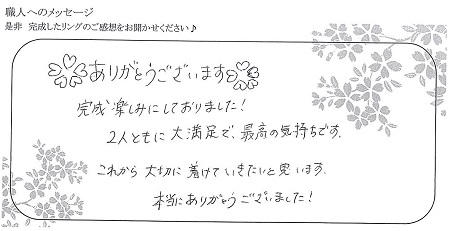 職人へのメッセージ
是非 完成したリングのご感想をお聞かせください♪
ありがとうございます
完成楽しみにしておりました!
2人ともに大満足で、最高の気持ちです.
これから大切に着けていきたいと思います.
本当にありがとうございました!